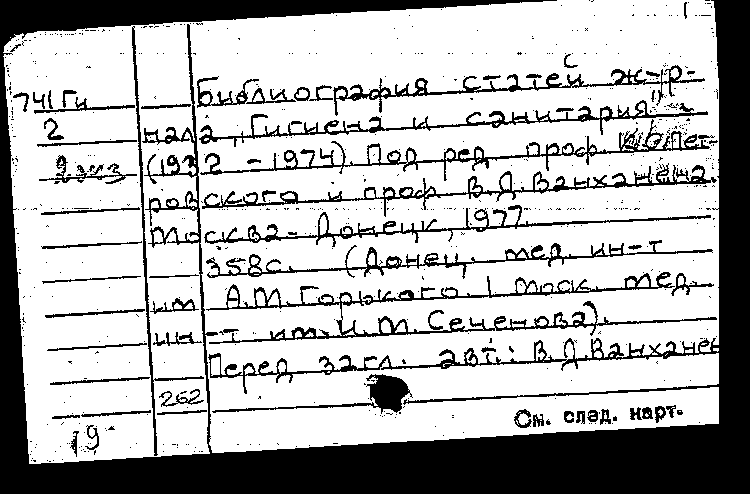 Библиография статей ж-р-
741 Ги
2 нала „Гигиена и санитария"
2 экз (1932 - 1974). Под ред. проф. Пет-
ровского и проф В.Д.Ванханена.
Москва-Донецк, 1977.
358с. (Донец. мед. ин-т
им А.М.Горького. 1 Моск. мед.
ин-т им.И.М.Сеченова).
Перед загл. авт.: В.Д.Ванханен
262
См. след. карт.
19